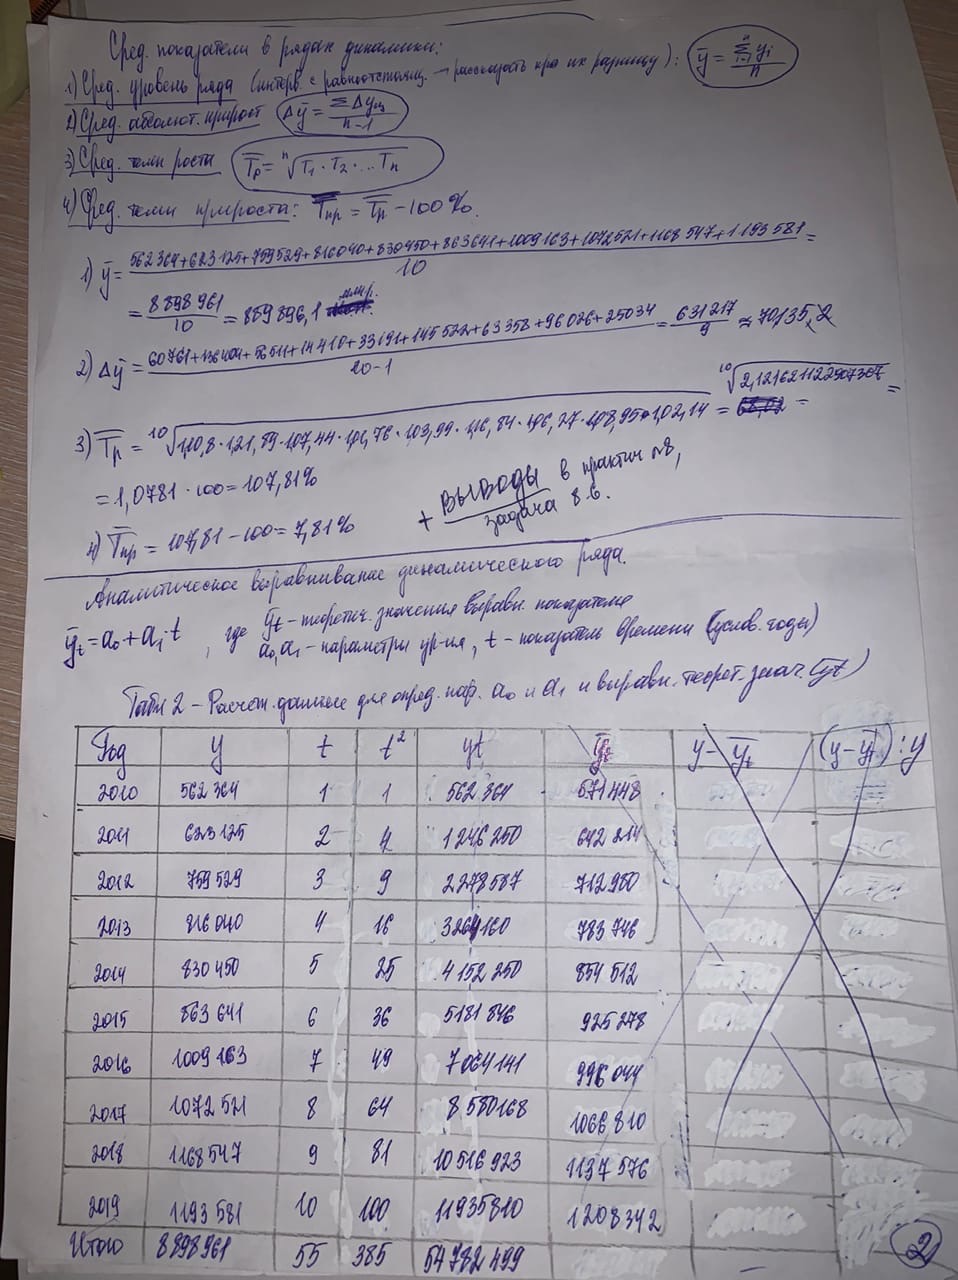 Сред. показатели в рядах динамики:
1) Сред. уровень ряда (интерв. с равноотстоящ. → рассказать про их разницу): ȳ = Σyi / n
2) Сред. абсолют. прирост Δȳ = ΣΔyц / n-1
3) Сред. темп роста T̅р = ⁿ√T₁ · T₂ · ... Tn
4) Сред. темп прироста: T̅пр = T̅р - 100%.
1) ȳ = 562364+623125+759529+816040+830450+863641+1009163+1072521+1168547+1193581 / 10 =
= 8898961 / 10 = 889896,1 млн р.
2) Δȳ = 60761+136404+56511+14410+33191+145522+63358+96026+25034 / 10-1 = 631217 / 9 ≈ 70135,2
3) T̅р = ¹⁰√1,10,8·1,21,89·1,07,44·1,01,76·1,03,99·1,16,84·1,06,27·1,08,95·1,02,14 = ¹⁰√2,121621122907367 =
= 1,0781 · 100 = 107,81%
4) T̅пр = 107,81 - 100 = 7,81%
+ ВЫВОДЫ в практич №8,
задача 8.6.
Аналитическое выравнивание динамического ряда.
ȳt = a₀ + a₁·t, где ȳt - теоретич. значения выравн. показателя
a₀, a₁ - параметры ур-ия, t - показатель времени (услов. годы)
Табл 2 - Расчет. данные для опред. пар. a₀ и a₁ и выравн. теорет. знач. (ȳt)
Год y t t² yt ȳt y - ȳt (y - ȳt) : y
2010 562364 1 1 562364 571448
2011 623125 2 4 1246250 642214
2012 759529 3 9 2278587 712980
2013 816040 4 16 3264160 783746
2014 830450 5 25 4152250 854512
2015 863641 6 36 5181846 925278
2016 1009163 7 49 7064141 996044
2017 1072521 8 64 8580168 1066810
2018 1168547 9 81 10516923 1137576
2019 1193581 10 100 11935810 1208342
Итого 8898961 55 385 54782499
2